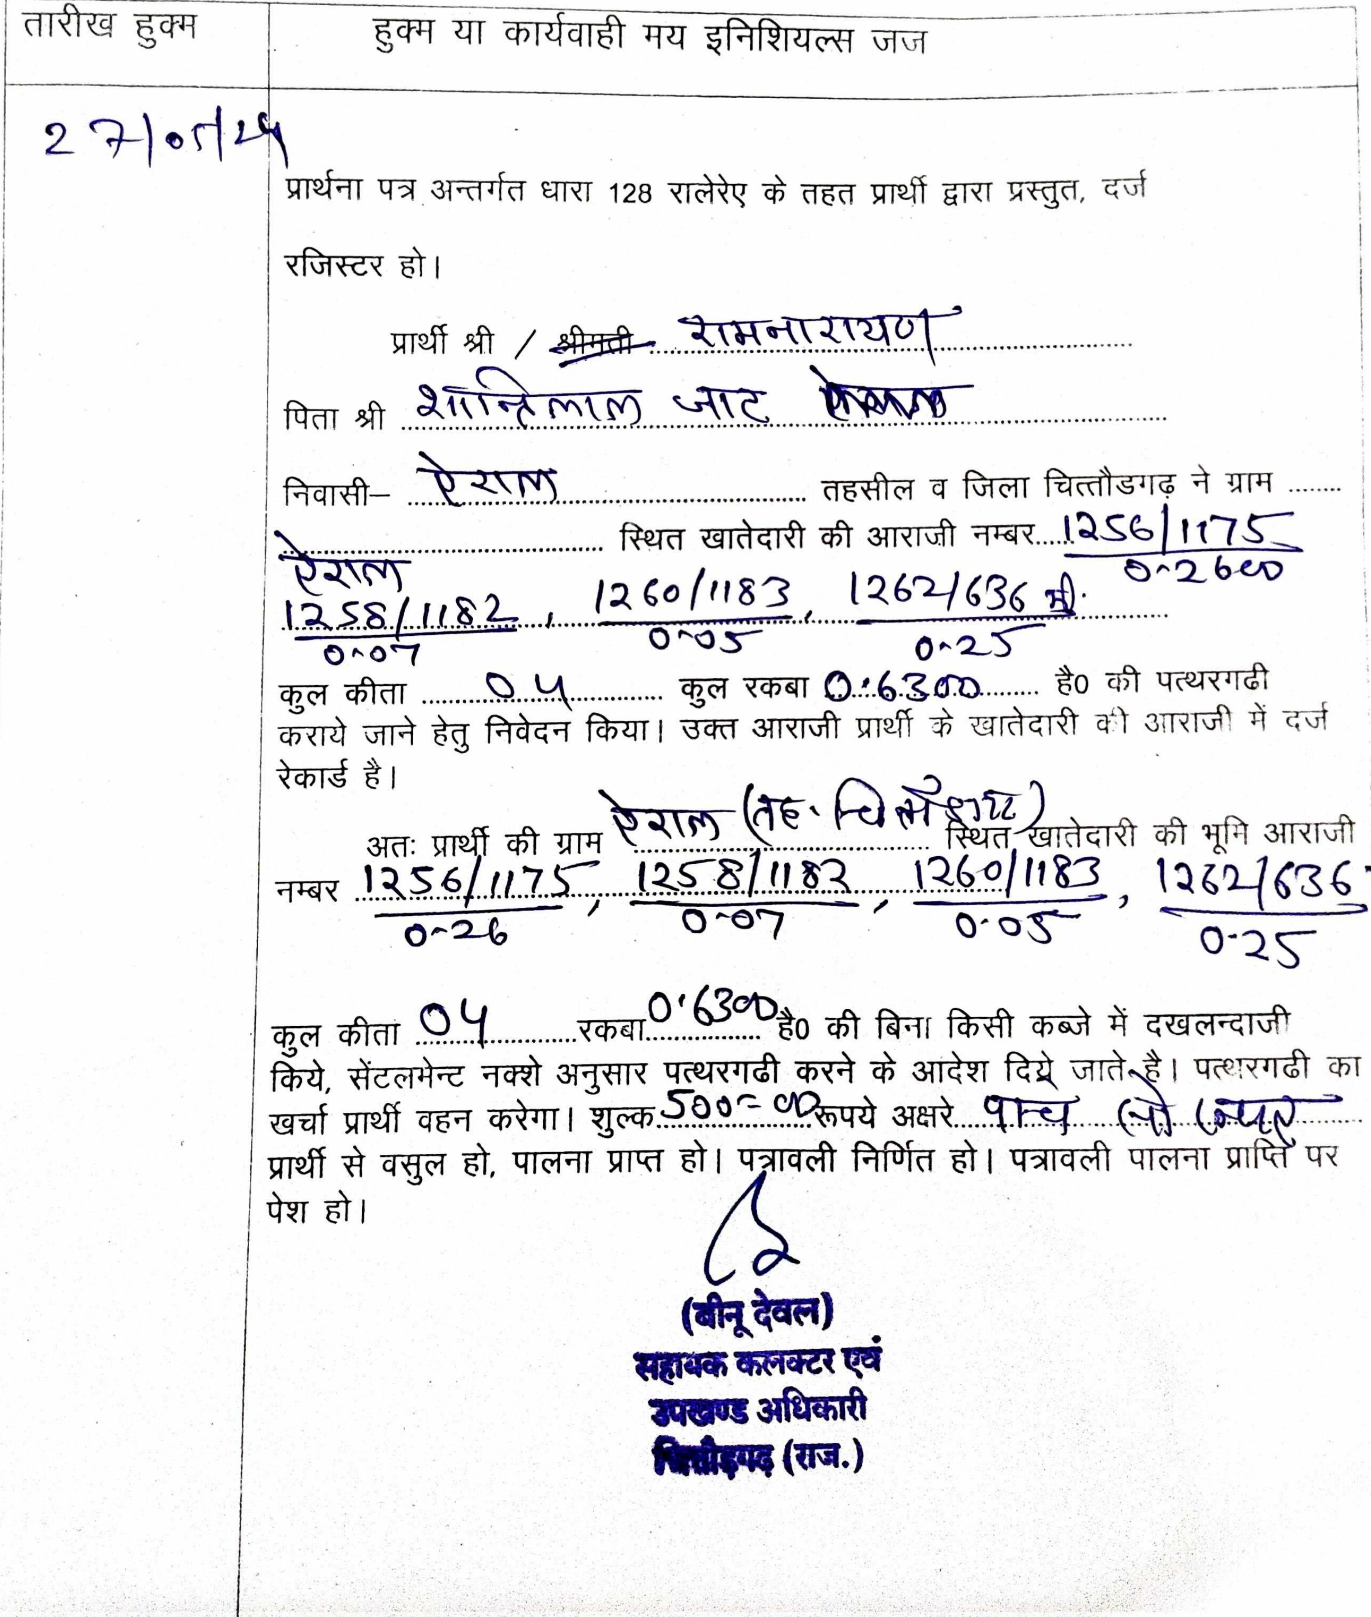 तारीख हुक्म
हुक्म या कार्यवाही मय इनिशियल्स जज
27/05/24
प्रार्थना पत्र अन्तर्गत धारा 128 रालेरेए के तहत प्रार्थी द्वारा प्रस्तुत, दर्ज
रजिस्टर हो।
प्रार्थी श्री / श्रीमती रामनारायण
पिता श्री शान्तिलाल जाट
निवासी– ऐराल तहसील व जिला चित्तौडगढ़ ने ग्राम ........
ऐराल स्थित खातेदारी की आराजी नम्बर 1256/1175
0-2600
1258/1182, 1260/1183, 1262/636 मी.
0-07 0-05 0-25
कुल कीता 04 कुल रकबा 0.6300 है0 की पत्थरगढी
कराये जाने हेतु निवेदन किया। उक्त आराजी प्रार्थी के खातेदारी की आराजी में दर्ज
रेकार्ड है।
अतः प्रार्थी की ग्राम ऐराल (तह. चित्तौड़गढ़) स्थित खातेदारी की भूमि आराजी
नम्बर 1256/1175, 1258/1182, 1260/1183, 1262/636
0-26 0-07 0-05 0-25
कुल कीता 04 रकबा 0.6300 है0 की बिना किसी कब्जे में दखलन्दाजी
किये, सेंटलमेन्ट नक्शे अनुसार पत्थरगढी करने के आदेश दिये जाते है। पत्थरगढी का
खर्चा प्रार्थी वहन करेगा। शुल्क 500=00 रूपये अक्षरे पाच सो रूपए
प्रार्थी से वसुल हो, पालना प्राप्त हो। पत्रावली निर्णित हो। पत्रावली पालना प्राप्ति पर
पेश हो।
(बीनू देवल)
सहायक कलक्टर एवं
उपखण्ड अधिकारी
चित्तौड़गढ़ (राज.)